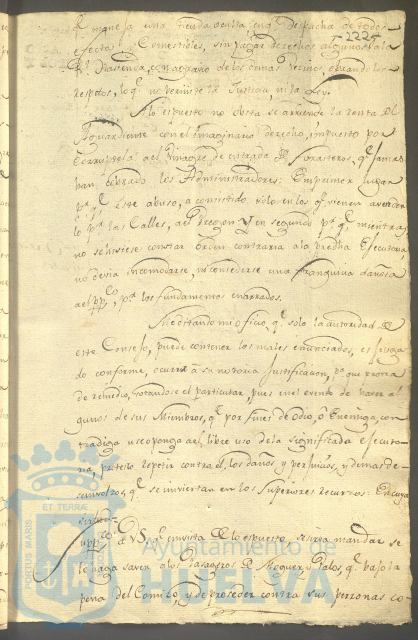 222
una tienda oculta, en q.e despacha de todos
efectos Comestibles, sin pagar derechos algunos a la
R.l Hazienda, con agravio de los demas vezinos,
respetos, lo q.e no permite la Justicia, ni la Ley.
lo espuesto no obsta se arriende la renta del
Aguardiente con el imaginario derecho, impuesto por
del Vinagre, de entrada de Forasteros, q.e jamas
han cobrado los Administradores: En primer lugar
p.r q.e este abuso, a consistido solo en los q.e vienen avender
lo p.r las Calles, al Pregon, y en segundo p.r q.e mientras
no se hiziese constar orden contraria a la predha Executoria
no devia incomodarse, ni concederse una franquisia dañosa
al pp.co, p.r los fundamentos enarrados.
Meditando mi oficio, q.e solo la autoridad de
este Consejo, puede contener los males enunciados, es
do conforme, ocurrir a su notoria Justificacion, p.a que provea
de remedio, votandose el particular, pues en el evento de haver al
gunos de sus Miembros, q.e por fines de Odio, o Enemiga, con
tradiga u se oponga al libre uso de la significada Executo
ria, protesto repetir contra el, los daños y perjuizios, y demas de
sembolsos, q.e se inviertan en los Superiores recursos: En cuya
virtud
A VS. q.e en vista de lo espuesto, se sirva mandar se
le haga saver a los Pasageros de Moguer, y Palos q.e bajo la
pena del Comiso, y de proseder contra sus personas co
PORTUS MARIS
ET TERRAE
Ayuntamiento de
HUELVA